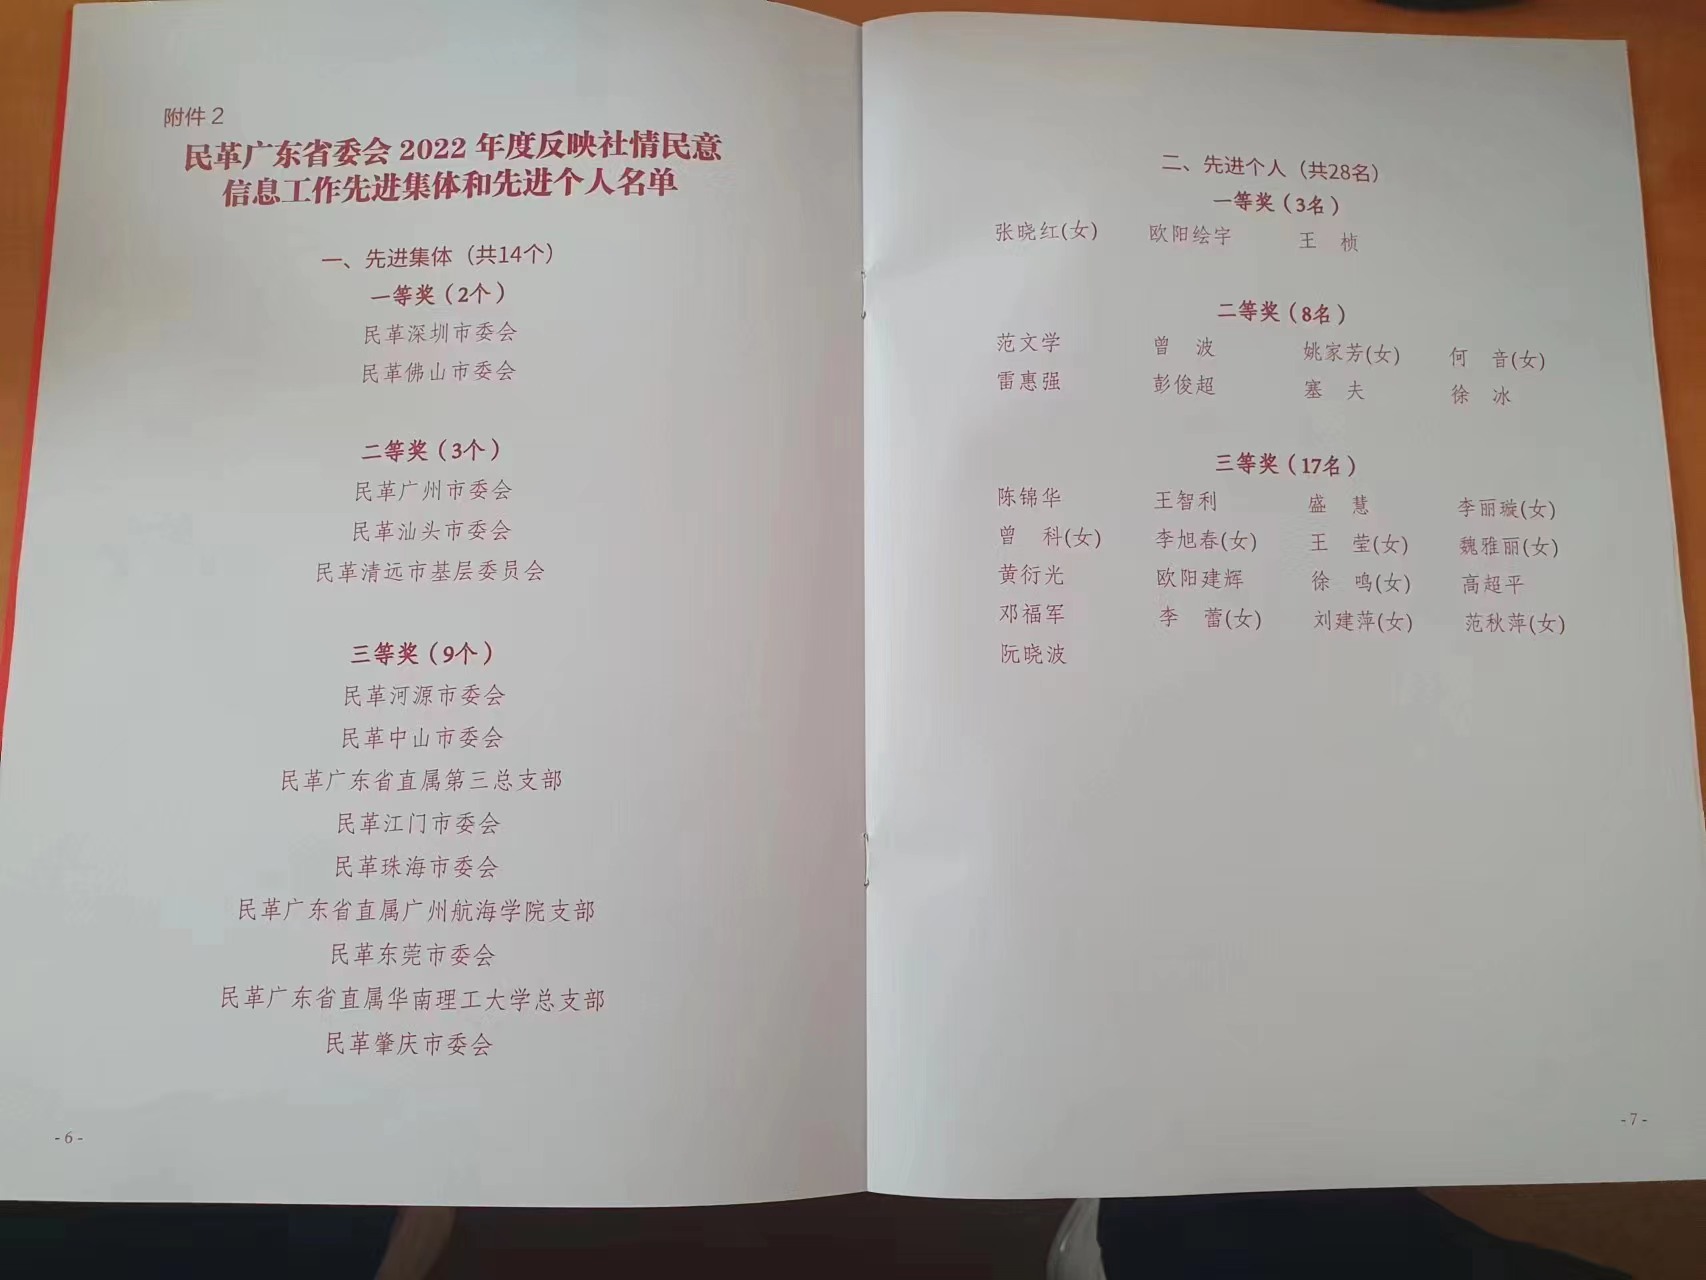 附件 2
民革广东省委会 2022 年度反映社情民意
信息工作先进集体和先进个人名单
一、先进集体（共14个）
一等奖（2个）
民革深圳市委会
民革佛山市委会
二等奖（3个）
民革广州市委会
民革汕头市委会
民革清远市基层委员会
三等奖（9个）
民革河源市委会
民革中山市委会
民革广东省直属第三总支部
民革江门市委会
民革珠海市委会
民革广东省直属广州航海学院支部
民革东莞市委会
民革广东省直属华南理工大学总支部
民革肇庆市委会
- 6 -
二、先进个人（共28名）
一等奖（3名）
张晓红(女) 欧阳绘宇 王 桢
二等奖（8名）
范文学 曾 波 姚家芳(女) 何 音(女)
雷惠强 彭俊超 塞 夫 徐 冰
三等奖（17名）
陈锦华 王智利 盛 慧 李丽璇(女)
曾 科(女) 李旭春(女) 王 莹(女) 魏雅丽(女)
黄衍光 欧阳建辉 徐 鸣(女) 高超平
邓福军 李 蕾(女) 刘建萍(女) 范秋萍(女)
阮晓波
- 7 -